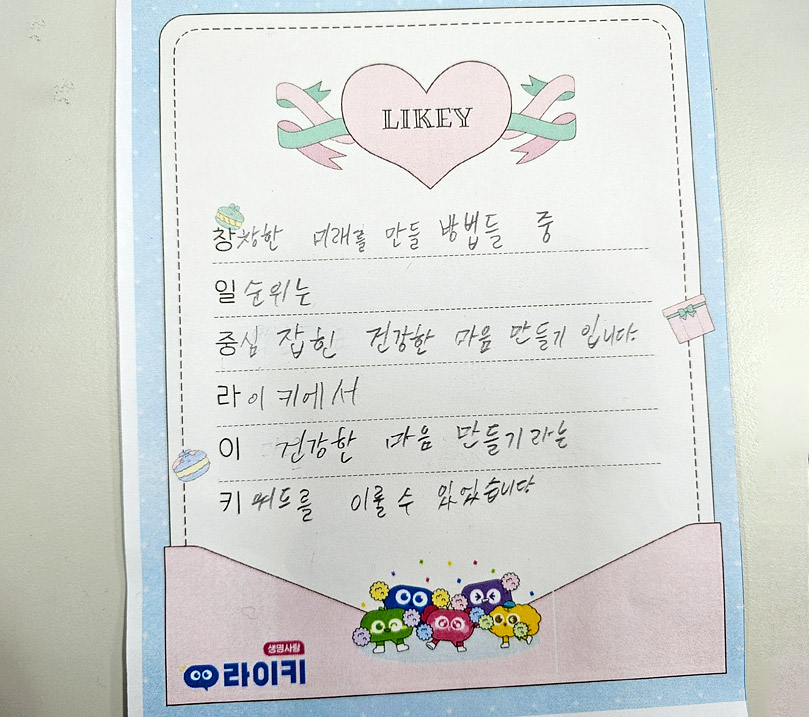 LIKEY
창창한 미래를 만들 방법들 중
일 순위는
중심 잡힌 건강한 마음 만들기 입니다
라이키에서
이 건강한 마음 만들기라는
키워드를 이룰 수 있었습니다
생명사랑
라이키